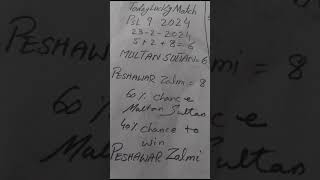 Today Lucky Match
PSL 9 2024
23-2-2024
5+2+8=6
MULTAN SULTAN=6
PESHAWAR Zalmi = 8
60% chance
Multan Sultan
40% chance to
win
PESHAWAR Zalmi